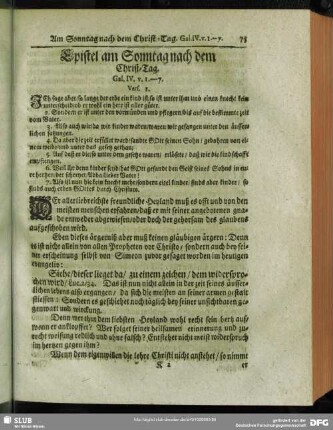 Am Sonntag nach dem Christ-Tag. Gal. IV. v. 1.—7. 75
Epistel am Sonntag nach dem
Christ-Tag.
Gal. IV. v. 1.—7.
Vers. 1.
Ich sage aber so lange der erbe ein kind ist so ist unter ihm und einem knecht kein
unterscheid ob er wohl ein herr ist aller güter.
2. Sondern er ist unter den vormünden und pflegern biß auf die bestimmte zeit
vom Vater.
3. Also auch wir da wir kinder waren waren wir gefangen unter den äusserlichen
satzungen.
4. Da aber die zeit erfüllet ward sandte GOtt seinen Sohn / gebohren von einem
weibe und unter das gesetz gethan;
5. Auf daß er die so unter dem gesetze waren erlösete / daß wir die kindschafft
empfiengen.
6. Weil ihr denn kinder seyd hat GOtt gesandt den Geist seines Sohns in eure
hertzen der schreyet Abba lieber Vater!
7. Also ist nun hie kein knecht mehr sondern eitel kinder; sinds aber kinder / so
sinds auch erben GOttes durch Christum.
allerliebreichste freundliche Heyland muß es offt und von den
meisten menschen erfahren/ daß er mit seiner angebotenen gnade
entweder abgewiesen/ oder doch der gehorsam des glaubens
aufgeschoben wird.
Eben dieses ärgerniß aber muß keinen gläubigen ärgern: Denn
es ist nicht allein von allen Propheten vor Christo / sondern auch bey seiner
erscheinung selbst von Simeon zuvor gesaget worden im heutigen
evangelio:
Siehe/ dieser lieget da/ zu einem zeichen/ dem widersprochen
wird/ Luc. 2/34. Das ist nun nicht allein in der zeit seines äusserlichen
lebens also ergangen/ da sich die meisten an seiner armen gestalt
stiessen: Sondern es geschiehet noch täglich bey seiner unsichtbaren gegenwart
und wirckung.
Denn wer thut dem liebsten Heyland wohl recht sein hertz auf
wenn er anklopffet? Wer folget seiner heilsamen erinnerung und zuredung
redlich und ohne falsch? Entstehet nicht meist widerspruch
im hertzen gegen ihm?
Wenn dem eigenwillen die lehre Christi nicht anstehet / so nimmt
K 2 er
SLUB
Wir führen Wissen.
gefördert von der
Deutschen Forschungsgemeinschaft
DFG